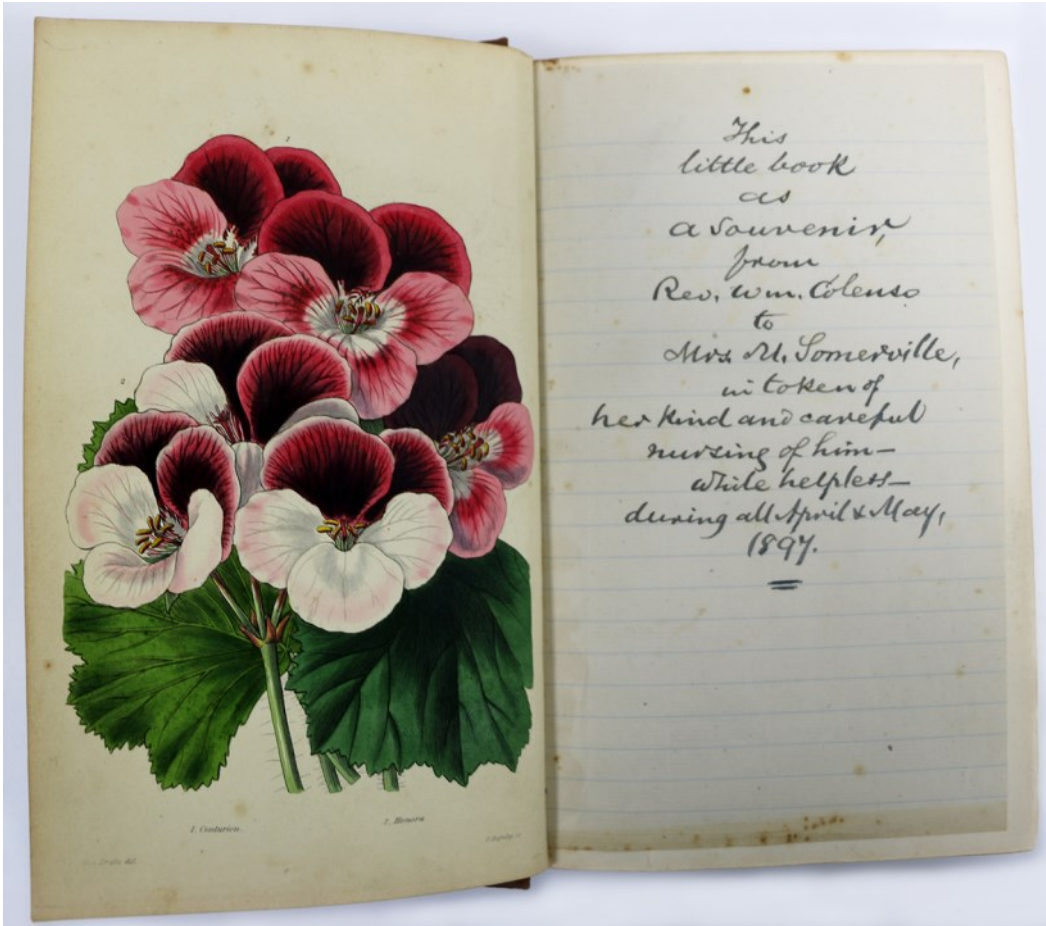 1
2
1. Centurion.
2. Honora
Miss Drake del.
This
little book
as
a Souvenir,
from
Rev. Wm. Colenso
to
Mrs. M. Somerville,
in token of
her kind and careful
nursing of him—
while helpless—
during all April & May,
1897.